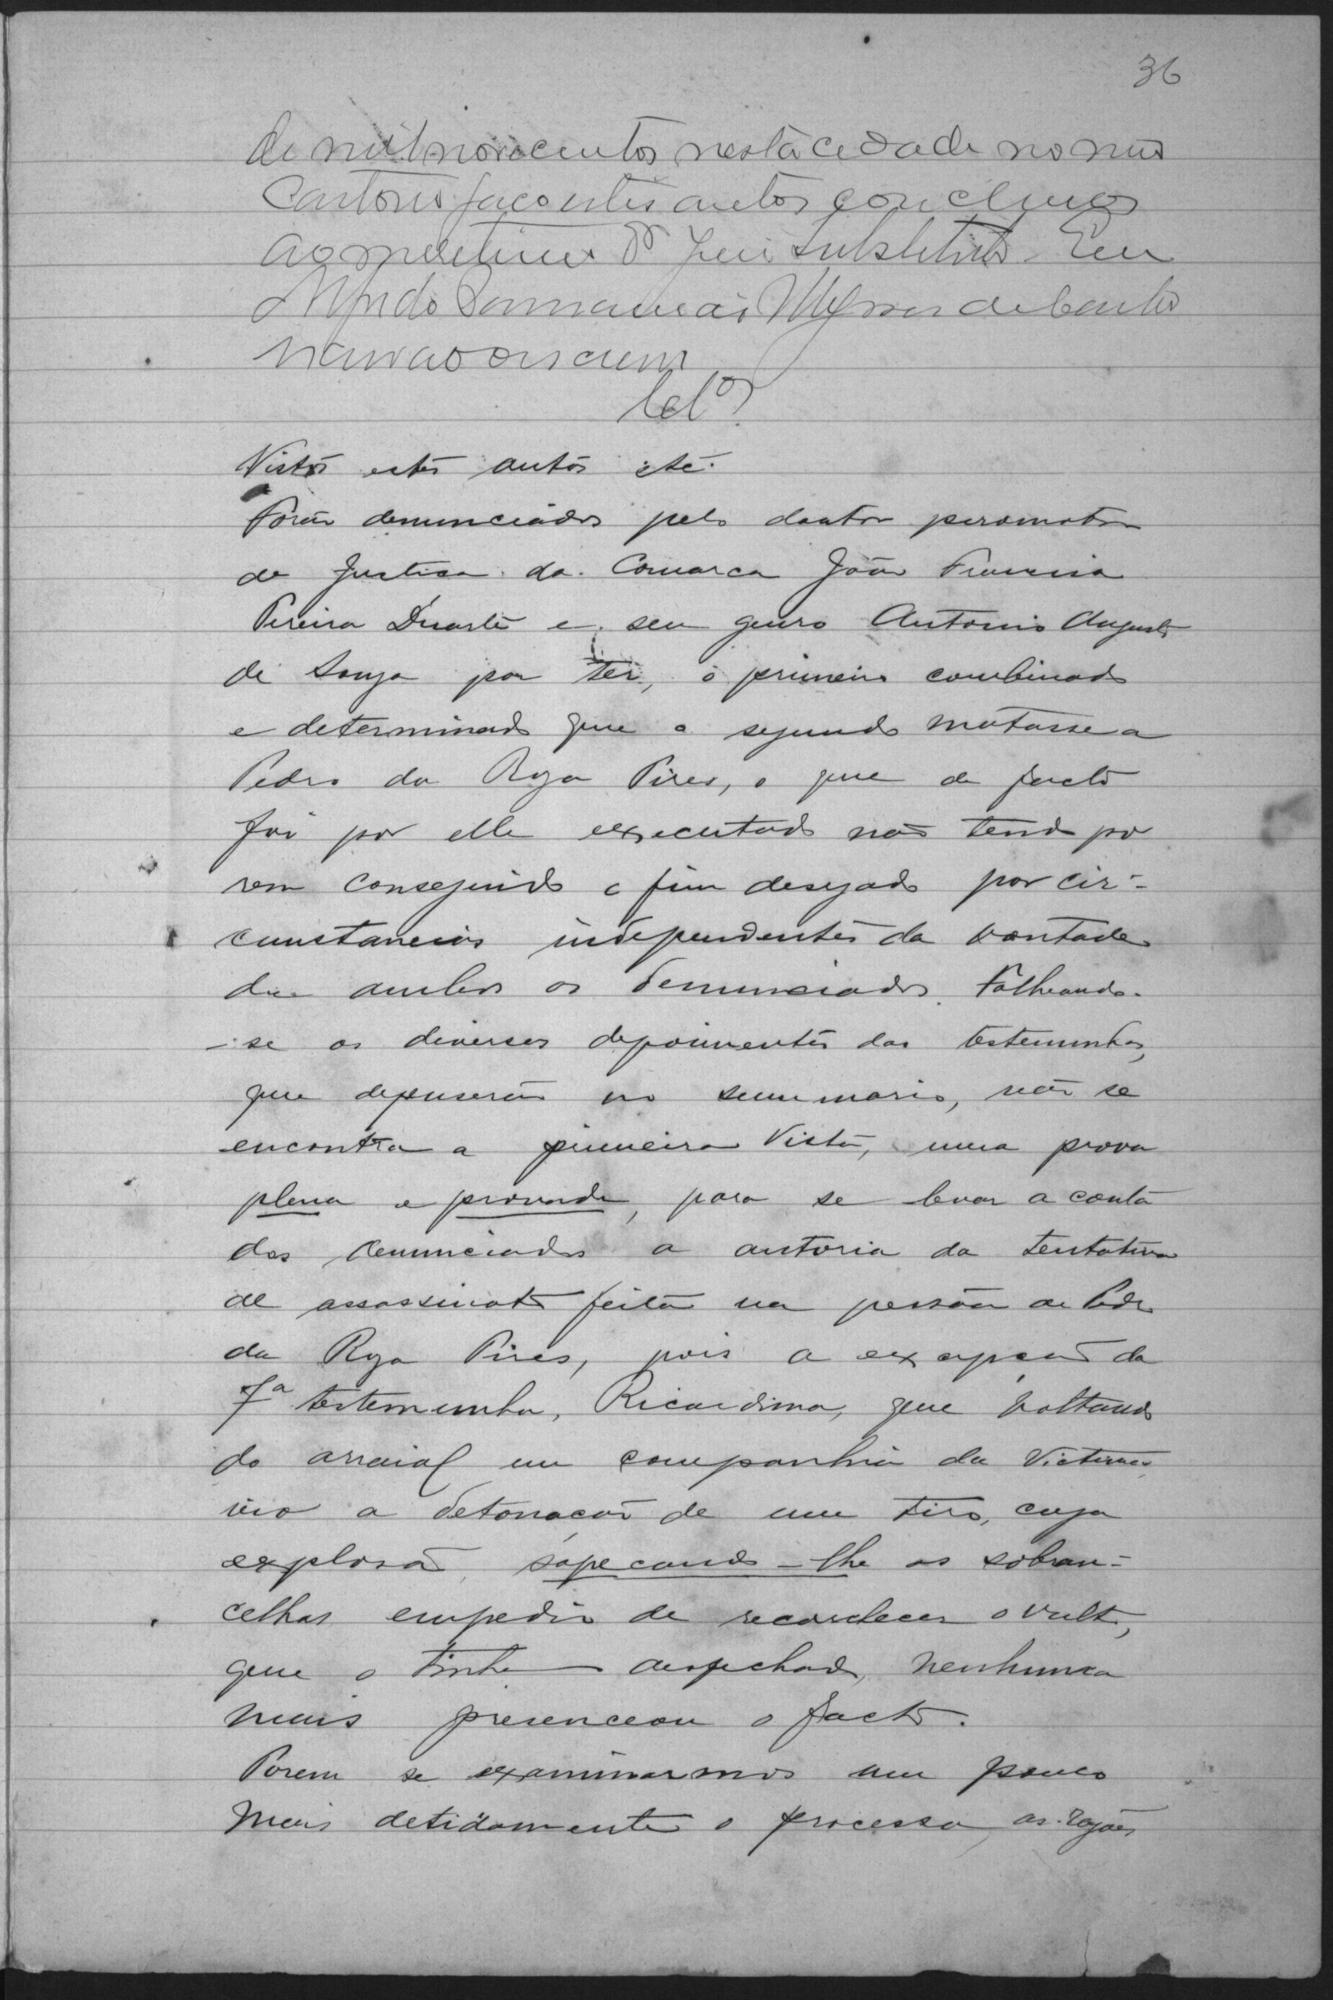 36
de mil novecentos nesta cidade no meu
Cartorio faço estes autos conclusos
ao meretissimo Dr Juiz Substituto. Eu
Alfredo
escrivão
Cls.
Vistos estes autos etc.
Forão denunciados pelo doutor promotor
de Justiça da Comarca João Ferreira
Pereira Duarte e seu genro Antonio Augusto
de Souza por ter, o primeiro combinado
e determinado que o segundo matasse a
Pedro da Roza Pires, o que de facto
foi por elle executado não tendo po
rem conseguido o fim desejado por cir-
cunstancias independentes da vontade
de ambos os denunciados. Folheando-
-se os diversos depoimentos das testemunhas,
que depuserão no summario, não se
encontra a primeira vista, uma prova
plena e provada, para se levar a conta
dos denunciados a autoria da tentativa
de assassinato feita na pessôa de Pedro
da Roza Pires, pois a excepção da
7ª testemunha, Ricardina, que voltando
do arraial em companhia da victima,
vio a detonação de um tiro, cuja
explosão, sapecando-lhe as sobran-
celhas empedio de reconhecer o vulto,
que o tinha desfechado, nenhuma
mais presenceou o facto.
Porem se examinarmos um pouco
mais detidamente o processo, as razões